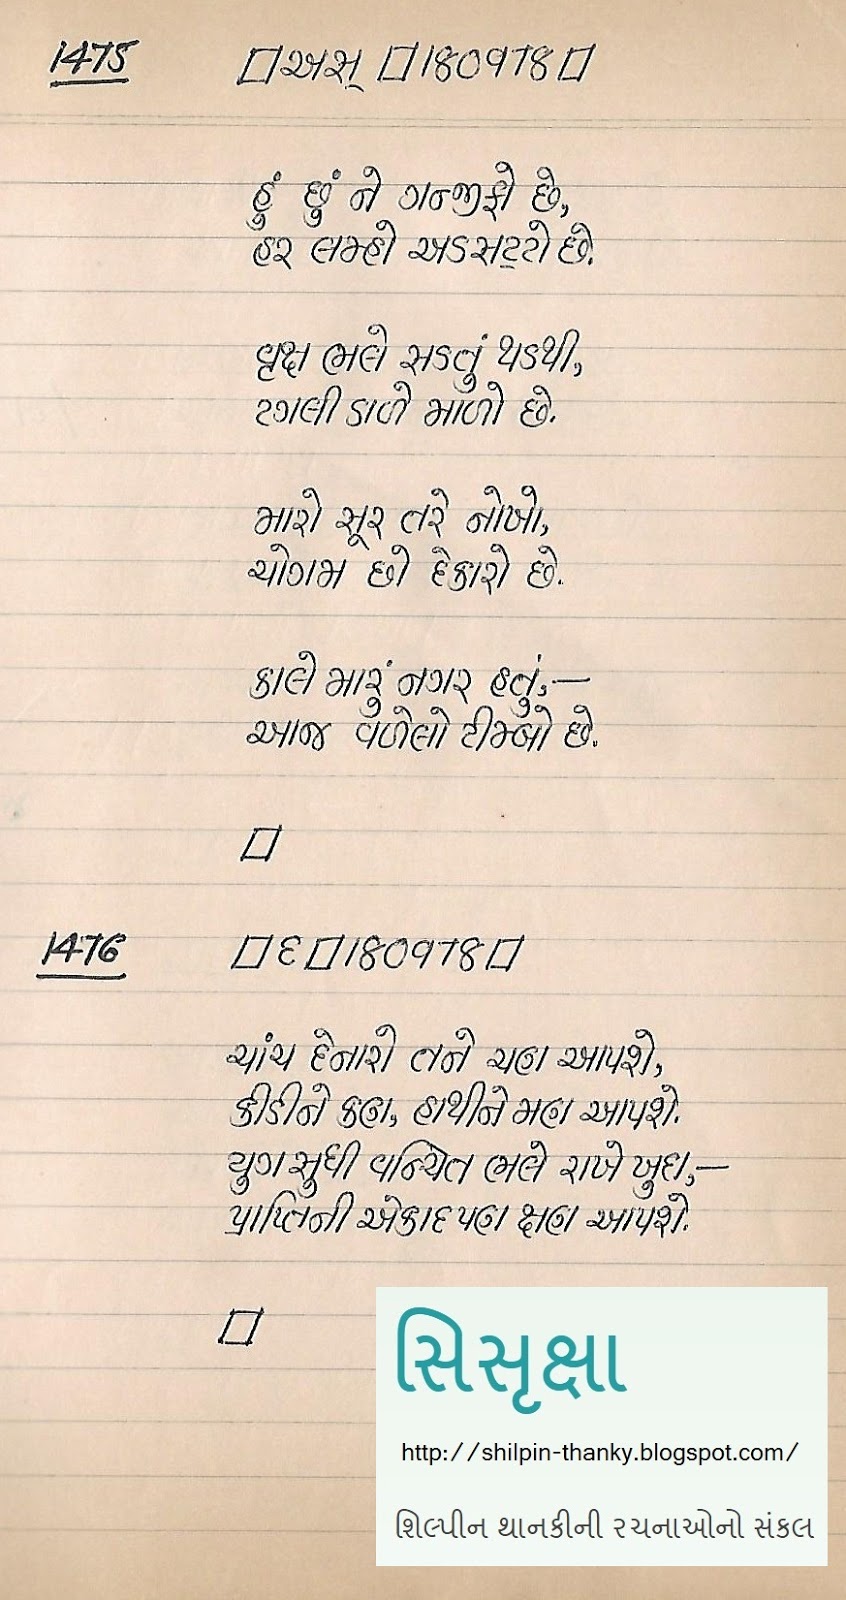 1475 □ અસ્ □ 180978 □
હું છું ને ગન્જીફો છે,
હર લમ્હો અડસટ્ટો છે.
વૃક્ષ ભલે સડતું થડથી,
ટગલી ડાળે માળો છે.
મારો સૂર તરે નોખો,
ચોગમ છો દેકારો છે.
કાલે મારું નગર હતું,—
આજ વળેલો ટીમ્બો છે.
□
1476 □ દ □ 180978 □
ચાંચ દેનારો તને ચણ આપશે,
કીડીને કણ, હાથીને મણ આપશે.
યુગ સુધી વન્ચિત ભલે રાખે ખુદા,—
પ્રાપ્તિની એકાદ પણ ક્ષણ આપશે.
□
સિસૃક્ષા
http://shilpin-thanky.blogspot.com/
શિલ્પીન થાનકીની રચનાઓનો સંકલ